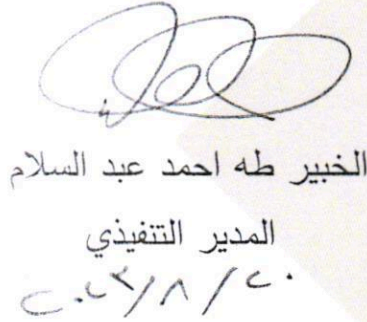 الخبير طه احمد عبد السلام
المدير التنفيذي
٢٠٢٣/٨/٢٠